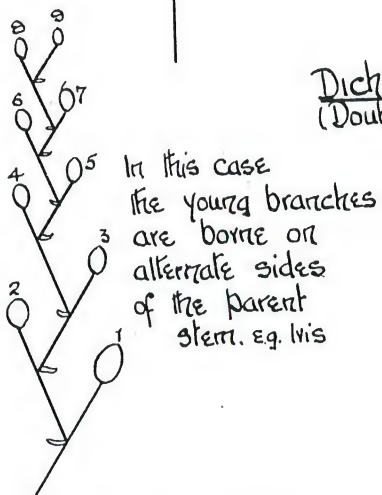 8 9
7
6
5
4
3
2
1
Dich
(Doub
In this case
the young branches
are borne on
alternate sides
of the parent
stem. e.g. Iris